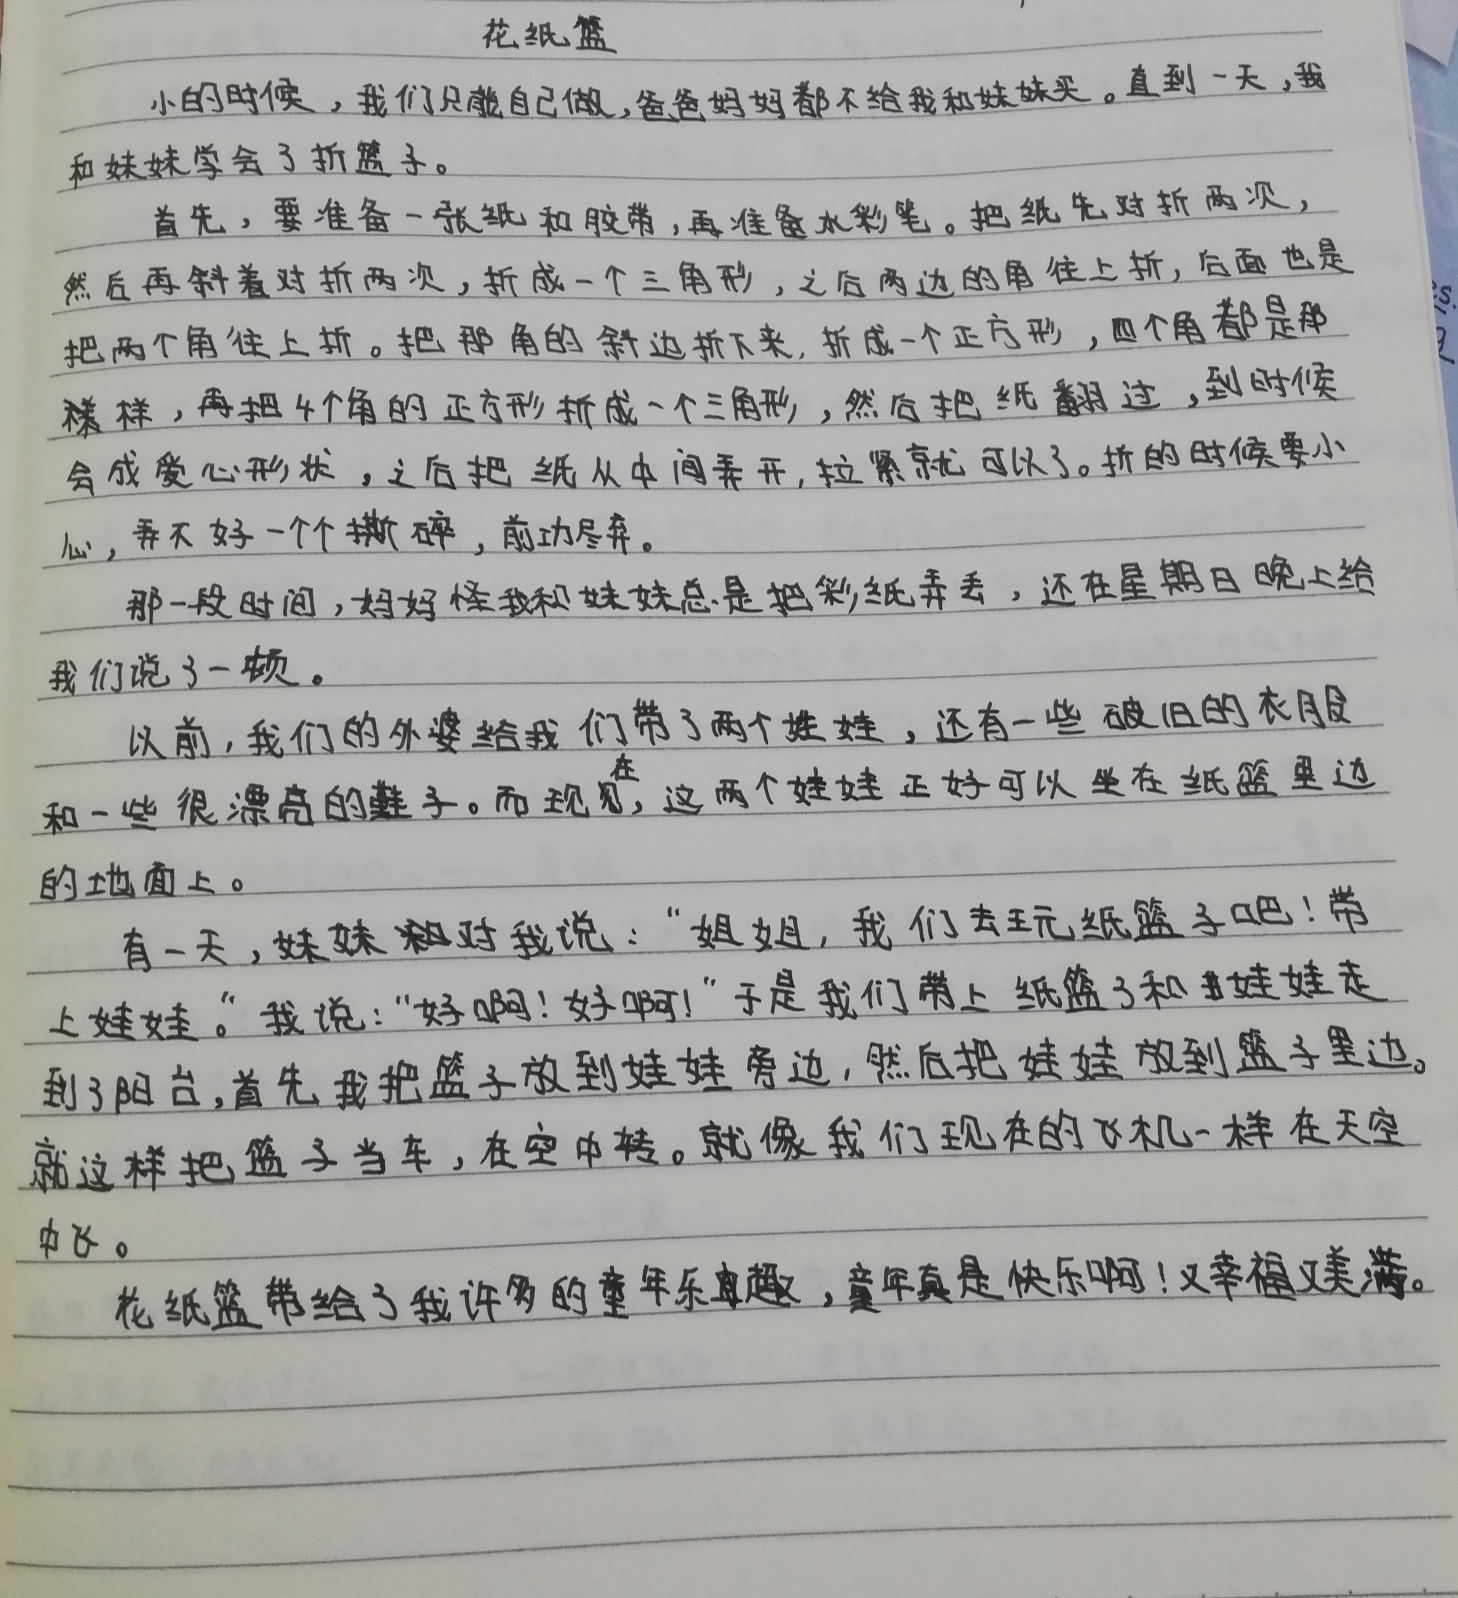 花纸篮
小的时候，我们只能自己做，爸爸妈妈都不给我和妹妹买。直到一天，我
和妹妹学会了折篮子。
首先，要准备一张纸和胶带，再准备水彩笔。把纸先对折两次，
然后再斜着对折两次，折成一个三角形，之后两边的角往上折，后面也是
把两个角往上折。把那角的斜边折下来，折成一个正方形，四个角都是那
样，再把4个角的正方形折成一个三角形，然后把纸翻过，到时候
会成爱心形状，之后把纸从中间弄开，拉紧就可以了。折的时候要小
心，弄不好一个个撕碎，前功尽弃。
那一段时间，妈妈怪我和妹妹总是把彩纸弄丢，还在星期日晚上给
我们说了一顿。
以前，我们的外婆给我们带了两个娃娃，还有一些破旧的衣服
和一些很漂亮的鞋子。而现在，这两个娃娃正好可以坐在纸篮里边
的地面上。
有一天，妹妹对我说：“姐姐，我们去玩纸篮子吧！带
上娃娃。”我说：“好啊！好啊！”于是我们带上纸篮了和娃娃走
到了阳台，首先我把篮子放到娃娃旁边，然后把娃娃放到篮子里边。
就这样把篮子当车，在空中转。就像我们现在的飞机一样在天空
中飞。
花纸篮带给了我许多的童年乐趣，童年真是快乐啊！又幸福又美满。